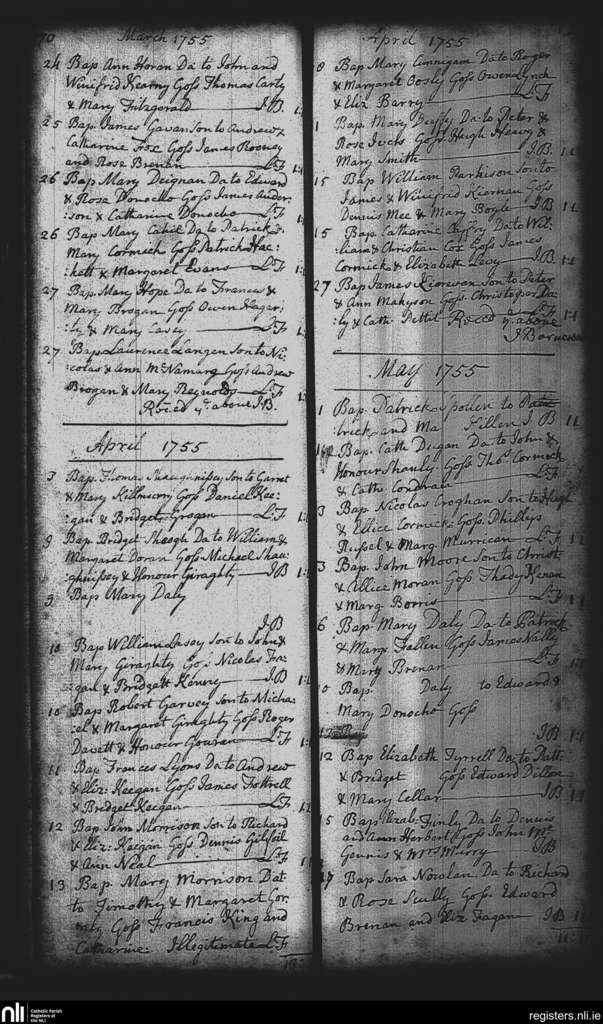 70 March 1755
24 Bap. Ann Horan Da to John and
Winifred Kearny Goss Thomas Carty
& Mary Fitzgerald — J B 1:1
25 Bap. James Gavan Son to Andrew &
Catharine Fox Goss James Rooney
and Rose Brenan — L F 1:1
26 Bap. Mary Deignan Da to Edward
& Rose Donocho Goss James Ander:
:son & Catharine Donocho — L F 1:1
26 Bap. Mary Cahil Da to Patrick &
Mary Cormick Goss Patrick Hac:
:kett & Margaret Evans — L F 1:1
27 Bap. Mary Hope Da to Francis &
Mary Brogan Goss Owen Hagar:
:ty & Mary Casey — L F 1:1
27 Bap. Laurence Langan Son to Ni:
colas & Ann McNamara Goss Andrew
Brogan & Mary Reynolds — L F 1:1
Reced ye above J B.
April 1755
3 Bap. Thomas Son to Garret
& Mary Goss Daniel Kee:
:gan & Bridget Grogan — L F 1:1
9 Bap. Bridget Da to William &
Margaret Doran Goss Michael Shau:
& Honour Geraghty — J B 1:1
9 Bap Mary Daly
J B
10 Bap William Casey Son to John &
Mary Giraghty Goss Nicolas Fa:
:gan & Bridgett Kenny — J B 1:1
10 Bap Robert Garvey Son to Micha:
:el & Margaret Giraghty Goss Roger
Davett & Honour — L F 1:1
11 Bap Frances Lyons Da to Andrew
& Eliz: Keegan Goss James Fottrell
& Bridget Keegan — L F 1:1
12 Bap John Morrison Son to Richard
& Eliz: Keegan Goss Dennis Gilfoil
& Ann Neal — L F 1:1
13 Bap. Mary Morrison Dat
to Timothy & Margaret Gor:
Goss Francis King and
Catharine: Illegitimate L F
April 1755
Bap Mary Cunnigam Da to Roger
& Margaret Cosly Goss Owen Lynch
& Eliz Barry — L F
Bap. Mary Duffy Da to Peter &
Rose Goss Hugh Heavy &
Mary Smith — J B. 1:1
15 Bap William Parkison Son to
James & Winifred Kiernan Goss
Dennis Mee & Mary Boyle — J B 1:1
15 Bap. Catharine Da to Wil:
liam & Christian Cox Goss James
Cormick & Elizabeth Levy — J B 1:1
27 Bap James Kierevan Son to Peter
& Ann Goss. Christopor Da:
:ly & Cath. Pettit L F 1:1
Reced ye above
J B
May 1755
1 Bap. Patrick Spollen to Patt
trick and Ma Killen J B 1:1
Bap. Cath Dugan Da to John &
Honour Shanly Goss Thos Cormick
& Cath: — L F
3 Bap Nicolas Croghan Son to Hugh
& Ellice Cormick Goss. Phillips
Russel & Marg Murrican — L F 1:1
3 Bap. John Moore Son to Christ:
& Ellice Moran Goss Thady Kenan
& Marg Borris — L F 1:1
6 Bap. Mary Daly Da to Patrick
& Marg: Fallen Goss James Nally
& Mary Brenan — L F 1:1
10 Bap. Daly to Edward &
Mary Donocho Goss
J B 1:1
12 Bap Elizabeth Tyrrell Da to Matt:
& Bridget Goss Edward Dillon
& Mary Cellar — J B 1:1
15 Bap. Elizab: Da to Dennis
and Ann Herbert Goss John Mc
Gennis & Mrs Murry — J B
27 Bap Sara Nowlan Da to Richard
& Rose Scully Goss. Edward
Brenan and Eliz Fagan — J B 1:1
nli Catholic Parish
Registers at
the NLI
registers.nli.ie